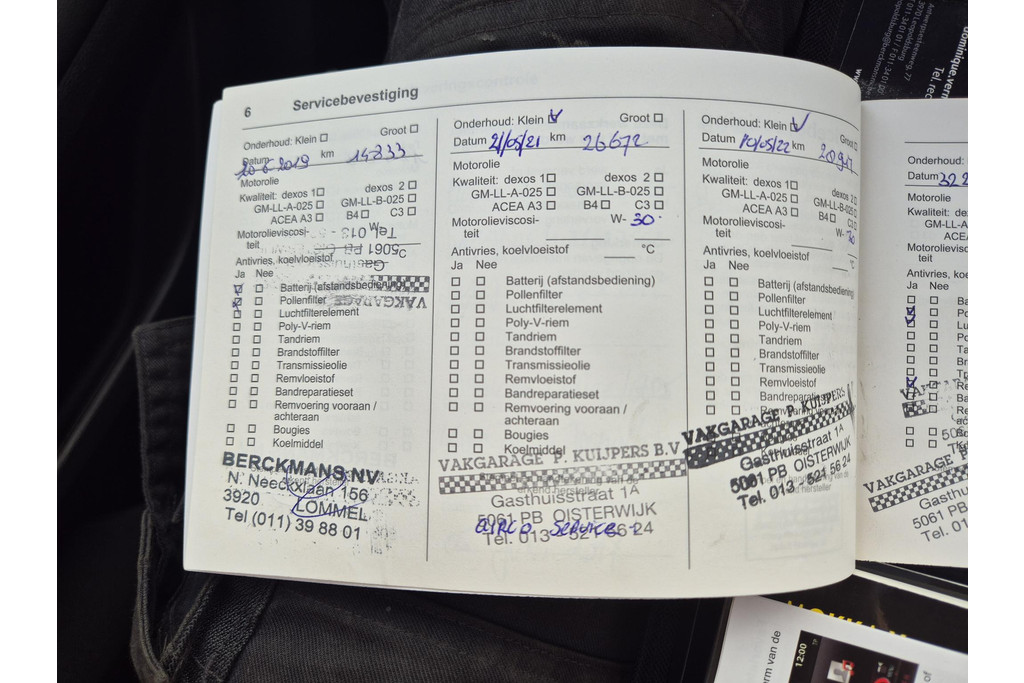 6 Servicebevestiging
Onderhoud: Klein Groot
Datum 20-6-2019 km 14833
Motorolie
Kwaliteit: dexos 1 dexos 2
GM-LL-A-025 GM-LL-B-025
ACEA A3 B4 C3
Motorolieviscosi-
teit
Antivries, koelvloeistof °C
Ja Nee
Batterij (afstandsbediening)
Pollenfilter
Luchtfilterelement
Poly-V-riem
Tandriem
Brandstoffilter
Transmissieolie
Remvloeistof
Bandreparatieset
Remvoering vooraan /
achteraan
Bougies
Koelmiddel
BERCKMANS NV
3920 LOMMEL
Tel (011) 39 88 01
Onderhoud: Klein Groot
Datum 21/05/21 km 26672
Motorolie
Kwaliteit: dexos 1 dexos 2
GM-LL-A-025 GM-LL-B-025
ACEA A3 B4 C3
Motorolieviscosi- W- 30
teit
Antivries, koelvloeistof °C
Ja Nee
Batterij (afstandsbediening)
Pollenfilter
Luchtfilterelement
Poly-V-riem
Tandriem
Brandstoffilter
Transmissieolie
Remvloeistof
Bandreparatieset
Remvoering vooraan /
achteraan
Bougies
Koelmiddel
VAKGARAGE P. KUIJPERS B.V
Gasthuisstraat 1A
5061 PB OISTERWIJK
Tel. 013 - 521 56 24
AIRCO Service
Onderhoud: Klein Groot
Datum 10/05/22 km
Motorolie
Kwaliteit: dexos 1 dexos 2
GM-LL-A-025 GM-LL-B-025
ACEA A3 B4 C3
Motorolieviscosi- W- 30
teit
Antivries, koelvloeistof °C
Ja Nee
Batterij (afstandsbediening)
Pollenfilter
Luchtfilterelement
Poly-V-riem
Tandriem
Brandstoffilter
Transmissieolie
Remvloeistof
Bandreparatieset
VAKGARAGE P. KUIJPERS
Gasthuisstraat 1A
5061 PB OISTERWIJK
Tel. 013 - 521 56 24
Onderhoud:
Datum
Motorolie
Kwaliteit: d
GM-LL-A
ACEA
Motorolievisc
teit
Antivries, koe
Ja Nee
VAKGARAGE P
Gasthuisst
5061 PB O
Tel. 01
Antwerpsesteenweg, 77
3970 Leopoldsburg
12:00